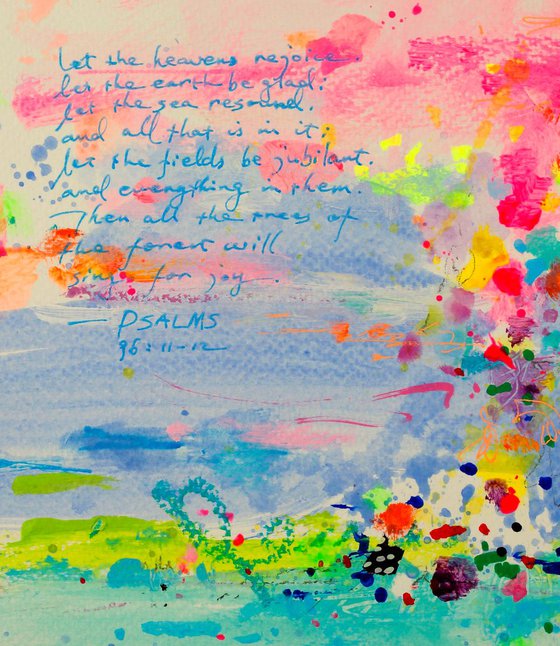 let the heavens rejoice.
let the earth be glad;
let the sea resound,
and all that is in it;
let the fields be jubilant,
and everything in them.
Then all the trees of
the forest will
sing for joy.
— PSALMS
96:11-12